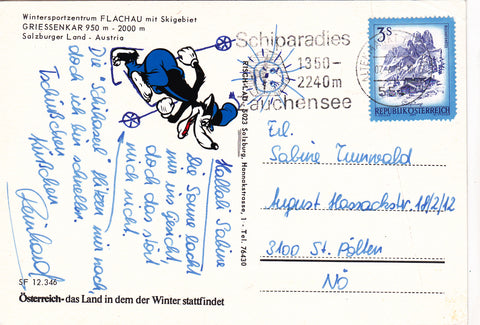 Wintersportzentrum FLACHAU mit Skigebiet
GRIESSENKAR 950 m - 2000 m
Salzburger Land - Austria
Hallali Sabine
Die Sonne lacht
mir ins Gesicht
doch das stört
mich nicht.
Die "Schihaserl" flitzen mir nach,
doch ich bin schneller.
Tschüßchen
Küßchen
Reinhard
SF 12.346
Österreich-das Land in dem der Winter stattfindet
5023 Salzburg, Hannakstrasse, 1 - Tel. 76430
Schiparadies
1350-
2240m
3 S
REPUBLIK ÖSTERREICH
Frl.
Sabine
August Hassackstr 18/2/12
3100 St. Pölten
NÖ